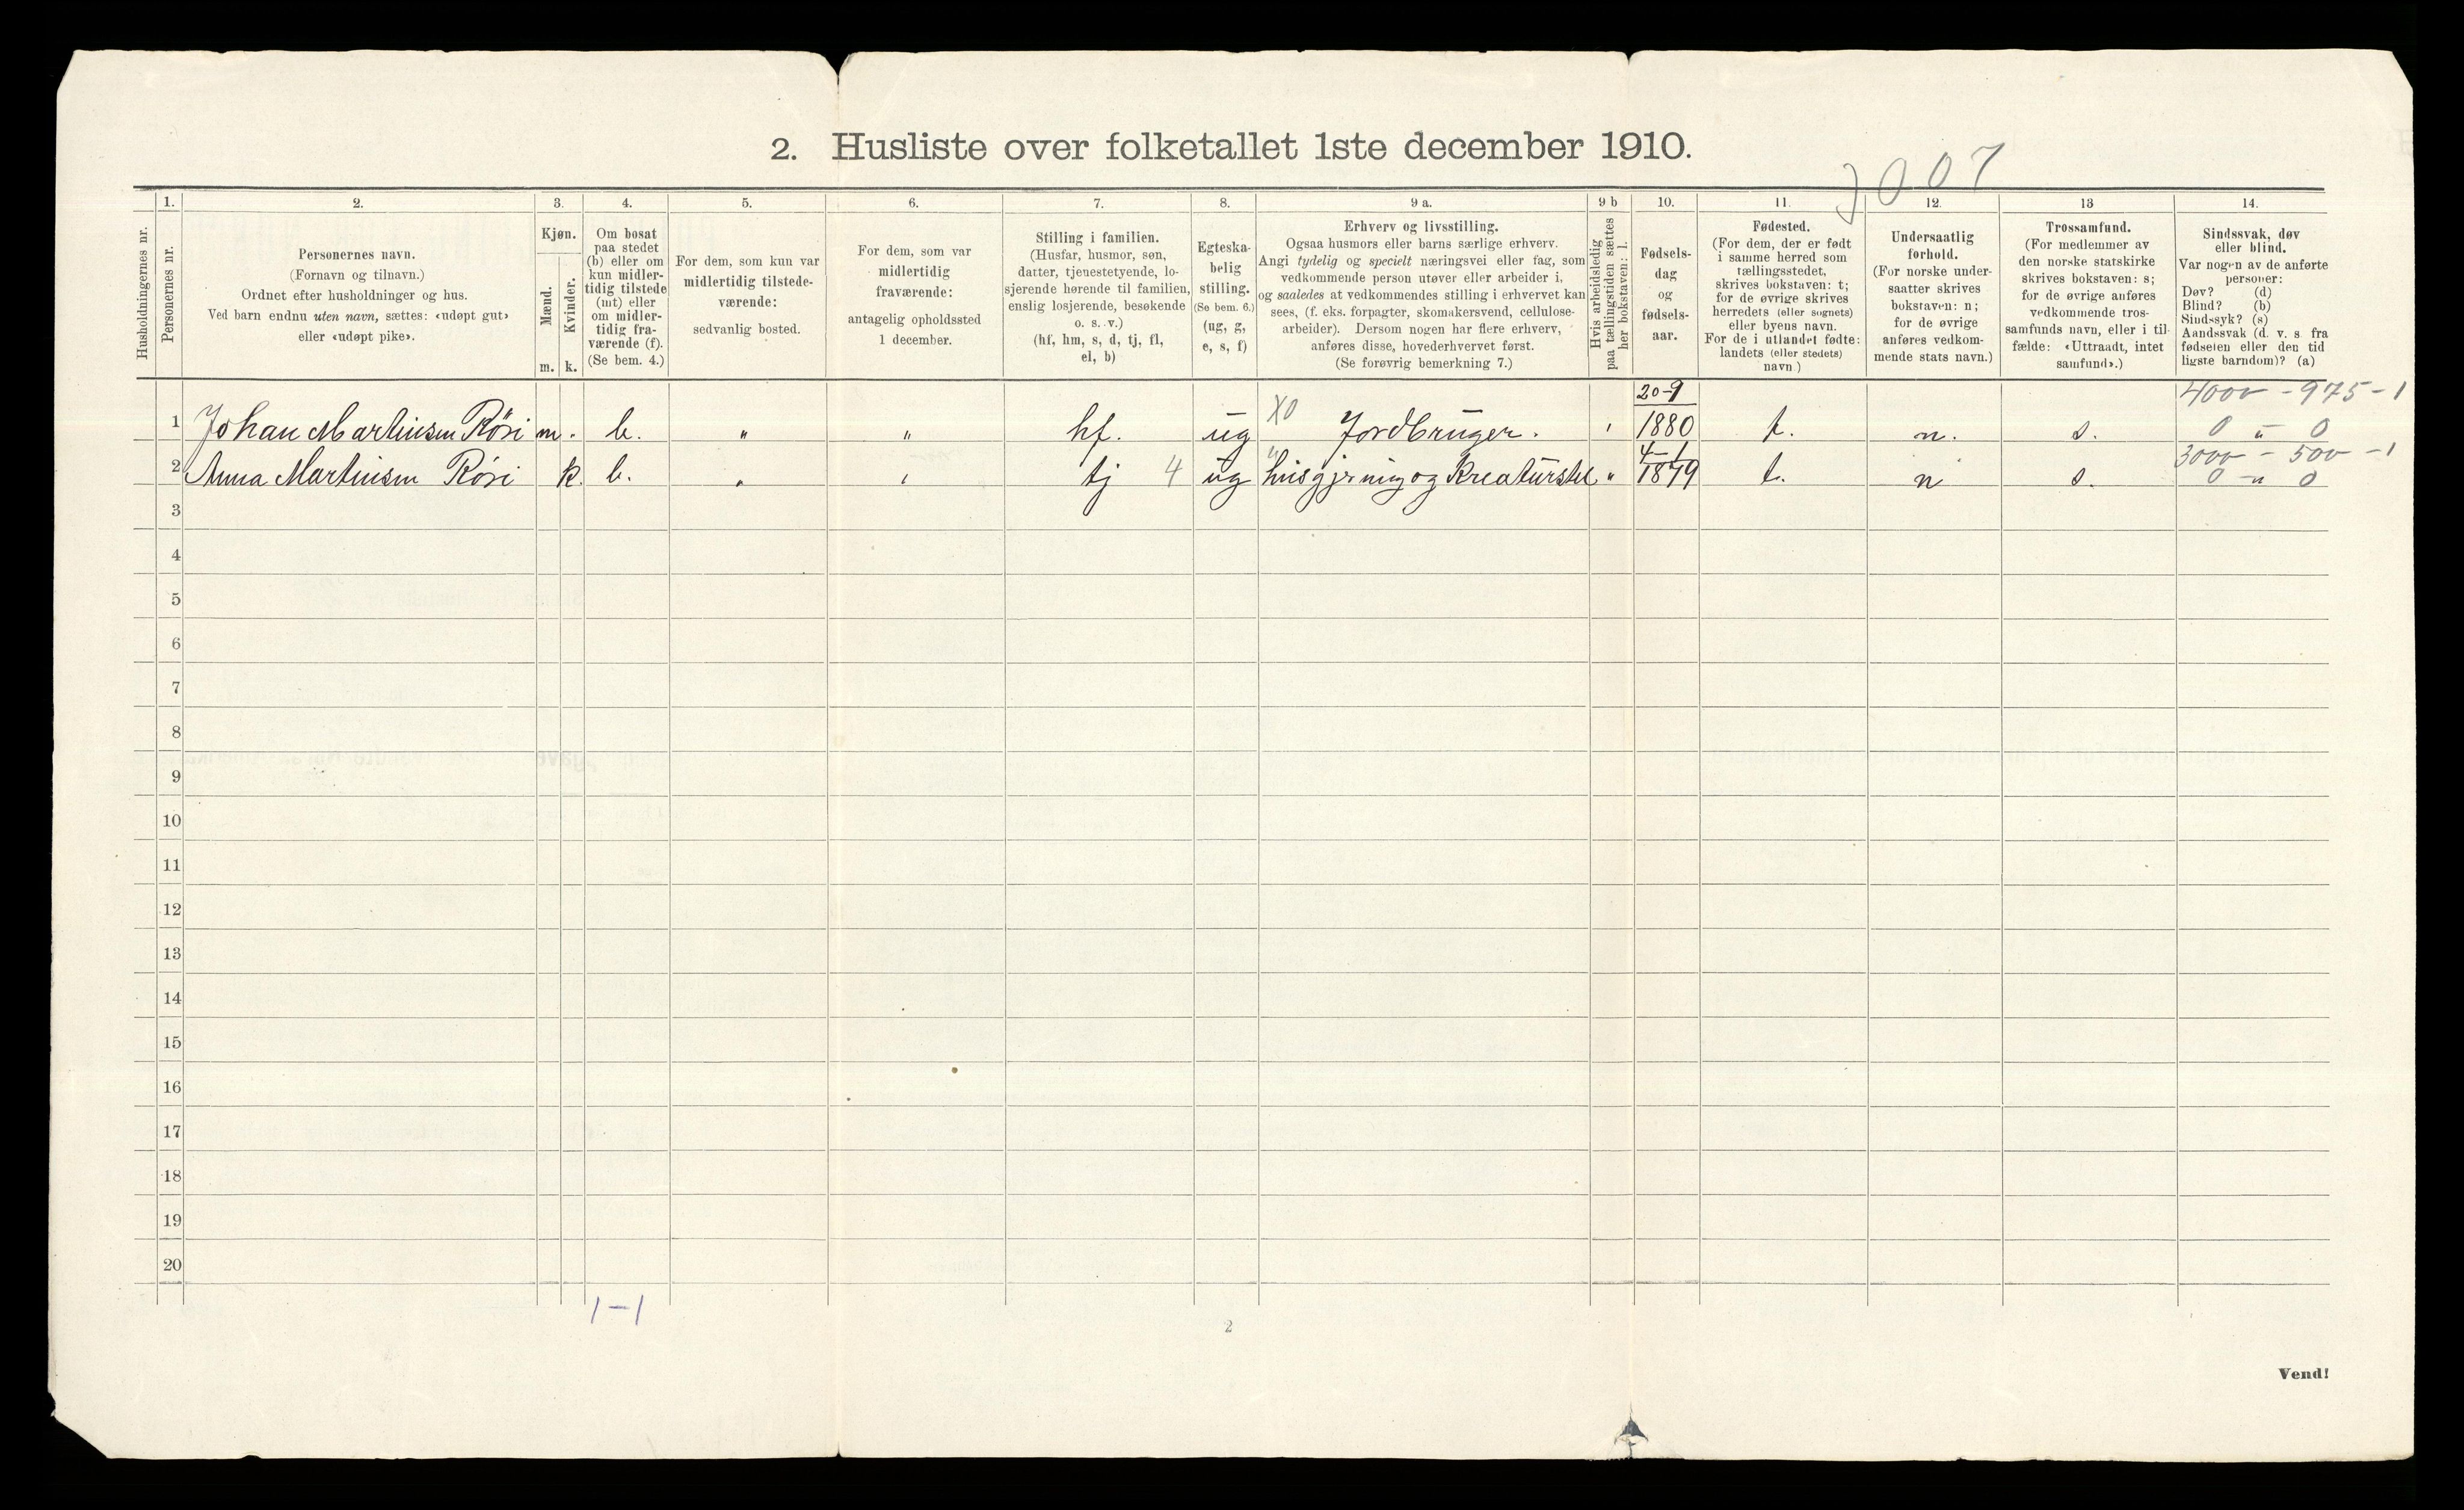 2. Husliste over folketallet 1ste december 1910.
1007
Husholdningernes nr.
1.
Personernes nr.
2.
Personernes navn.
(Fornavn og tilnavn.)
Ordnet efter husholdninger og hus.
Ved barn endnu uten navn, sættes: «udøpt gut»
eller «udøpt pike».
3.
Kjøn.
Mænd.
Kvinder.
m. k.
4.
Om bosat
paa stedet
(b) eller om
kun midler-
tidig tilstede
(mt) eller
om midler-
tidig fra-
værende (f).
(Se bem. 4.)
5.
For dem, som kun var
midlertidig tilstede-
værende:
sedvanlig bosted.
6.
For dem, som var
midlertidig
fraværende:
antagelig opholdssted
1 december.
7.
Stilling i familien.
(Husfar, husmor, søn,
datter, tjenestetyende, lo-
sjerende hørende til familien,
enslig losjerende, besøkende
o. s. v.)
(hf, hm, s, d, tj, fl,
el, b)
8.
Egteska-
belig
stilling.
(Se bem. 6.)
(ug, g,
e, s, f)
9 a.
Erhverv og livsstilling.
Ogsaa husmors eller barns særlige erhverv.
Angi tydelig og specielt næringsvei eller fag, som
vedkommende person utøver eller arbeider i,
og saaledes at vedkommendes stilling i erhvervet kan
sees, (f. eks. forpagter, skomakersvend, cellulose-
arbeider). Dersom nogen har flere erhverv,
anføres disse, hovederhvervet først.
(Se forøvrig bemerkning 7.)
9 b
Hvis arbeidsledig
paa tællingstiden sættes
her bokstaven: l.
10.
Fødsels-
dag
og
fødsels-
aar.
11.
Fødested.
(For dem, der er født
i samme herred som
tællingsstedet,
skrives bokstaven: t;
for de øvrige skrives
herredets (eller sognets)
eller byens navn.
For de i utlandet fødte:
landets (eller stedets)
navn.)
12.
Undersaatlig
forhold.
(For norske under-
saatter skrives
bokstaven: n;
for de øvrige
anføres vedkom-
mende stats navn.)
13
Trossamfund.
(For medlemmer av
den norske statskirke
skrives bokstaven: s;
for de øvrige anføres
vedkommende tros-
samfunds navn, eller i til-
fælde: «Uttraadt, intet
samfund».)
14.
Sindssvak, døv
eller blind.
Var nogen av de anførte
personer:
Døv? (d)
Blind? (b)
Sindssyk? (s)
Aandssvak (d. v. s. fra
fødselen eller den tid
ligste barndom)? (a)
20-9 4000 - 975 - 1
1 Johan Martinsen Röri m. b. " " hf. ug X0 Jordbruger. ' 1880 t. n. s. 0 " 0
4-1 3000 - 500 - 1
2 Anna Martinsen Röri k. b. " ' tj 4 ug " husgjerning og Kreaturstel " 1879 t. n s. 0 - " 0
3
4
5
6
7
8
9
10
11
12
13
14
15
16
17
18
19
20
1-1
2
Vend!